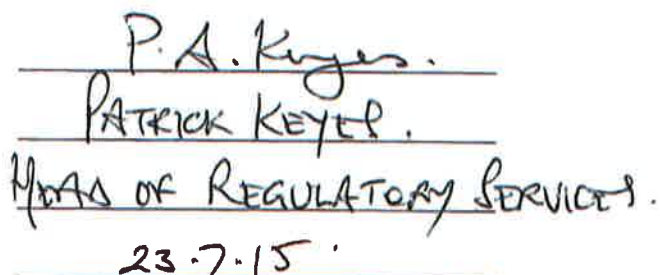 P. A. Keyes.
PATRICK KEYES.
HEAD OF REGULATORY SERVICES.
23.7.15